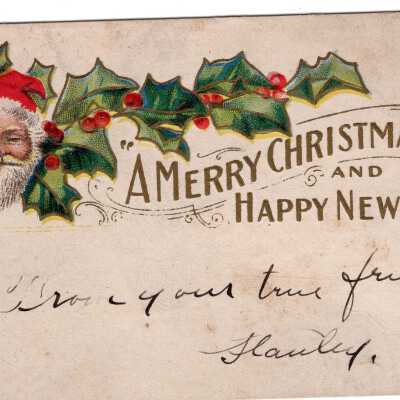 "A MERRY CHRISTMA
AND
HAPPY NEW
From your true fri
Stanley.